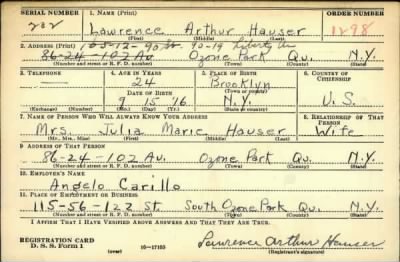 SERIAL NUMBER 1. NAME (Print) ORDER NUMBER
202 Lawrence Arthur Hauser 1298
2. ADDRESS (Print) 105-12-90 St. 90-19 Liberty Av
86-24-102 Av. Ozone Park Qu. N.Y.
(Number and street or R. F. D. number) (Town) (County) (State)
3. TELEPHONE 4. AGE IN YEARS 5. PLACE OF BIRTH 6. COUNTRY OF CITIZENSHIP
24 Brooklyn
DATE OF BIRTH
9 15 '16 N.Y. U.S.
(Exchange) (Number) (Mo.) (Day) (Yr.) (State or country)
7. NAME OF PERSON WHO WILL ALWAYS KNOW YOUR ADDRESS 8. RELATIONSHIP OF THAT PERSON
Mrs. Julia Marie Hauser Wife
(Mr., Mrs., Miss) (First) (Middle) (Last)
9. ADDRESS OF THAT PERSON
86-24-102 Av. Ozone Park Qu. N.Y.
(Number and street or R. F. D. number) (Town) (County) (State)
10. EMPLOYER'S NAME
Angelo Carillo
11. PLACE OF EMPLOYMENT OR BUSINESS
115-56-122 St. South Ozone Park Qu. N.Y.
(Number and street or R. F. D. number) (Town) (County) (State)
I AFFIRM THAT I HAVE VERIFIED ABOVE ANSWERS AND THAT THEY ARE TRUE.
REGISTRATION CARD
D. S. S. Form 1 (over) 16-17105 Lawrence Arthur Hauser
(Registrant's signature)